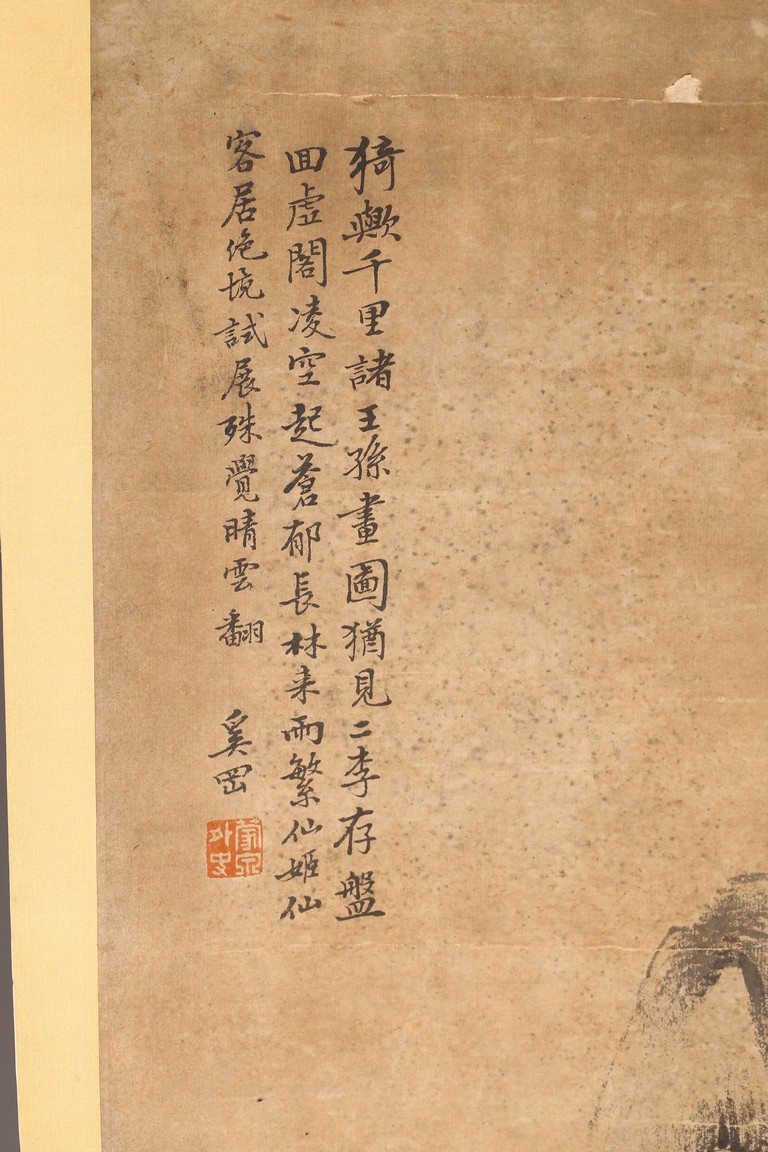 猗歟千里諸王孫畫圖猶見二李存盤
回虛閣凌空起蒼郁長林来雨繁仙姬仙
客居絶境試展殊覺晴雲翻
奚岡
蒙泉外史